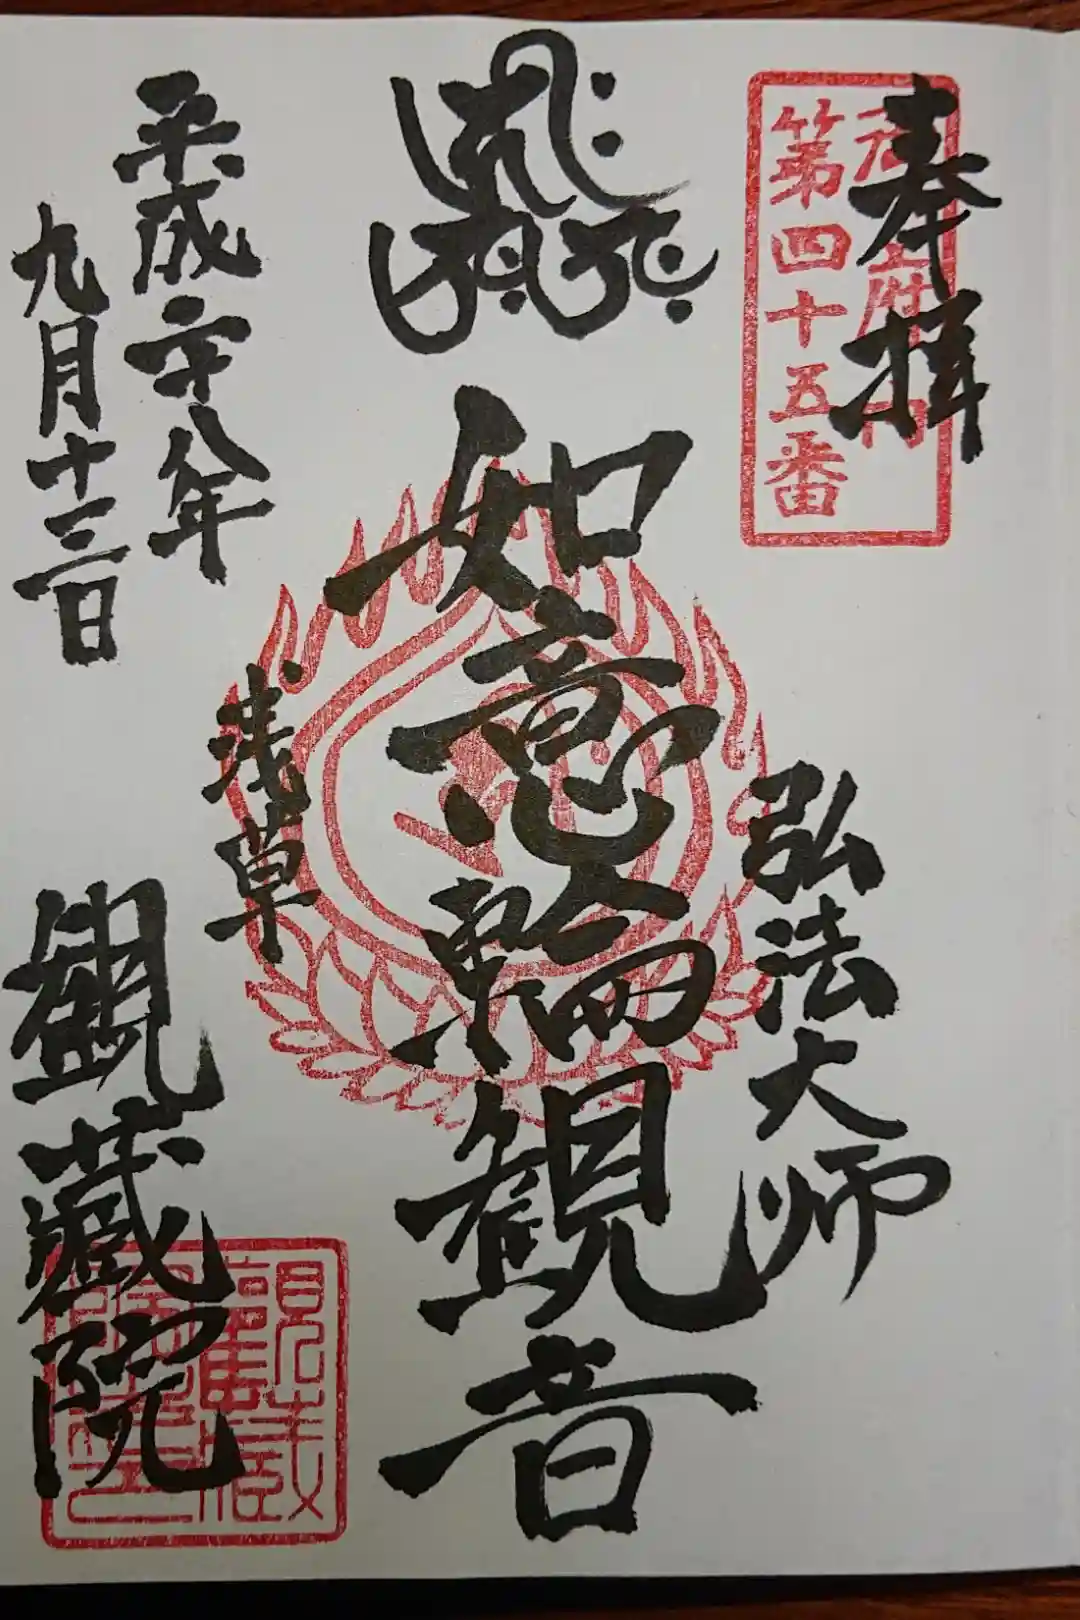 奉拝
第四十五番
弘法大師
如意輪観音
浅草
平成廿八年
九月十三日
観蔵院